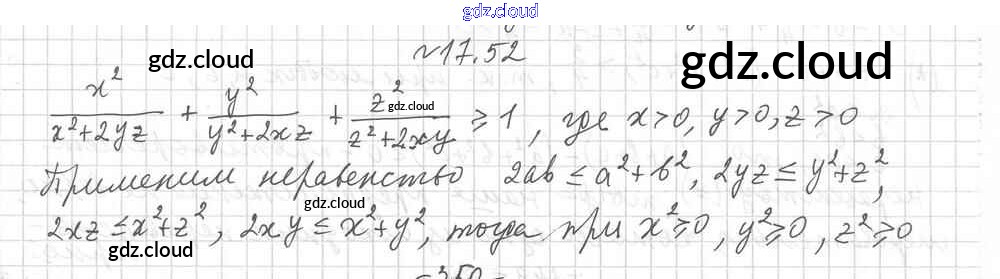 gdz.cloud
№17.52
gdz.cloud gdz.cloud
x²/(x²+2yz) + y²/(y²+2xz) + z²/(z²+2xy) ≥ 1, где x>0, y>0, z>0
gdz.cloud
Применим неравенство 2ab ≤ a²+b², 2yz ≤ y²+z²,
gdz.cloud
2xz ≤ x²+z², 2xy ≤ x²+y², тогда при x²≥0, y²≥0, z²≥0
gdz.cloud
-350-